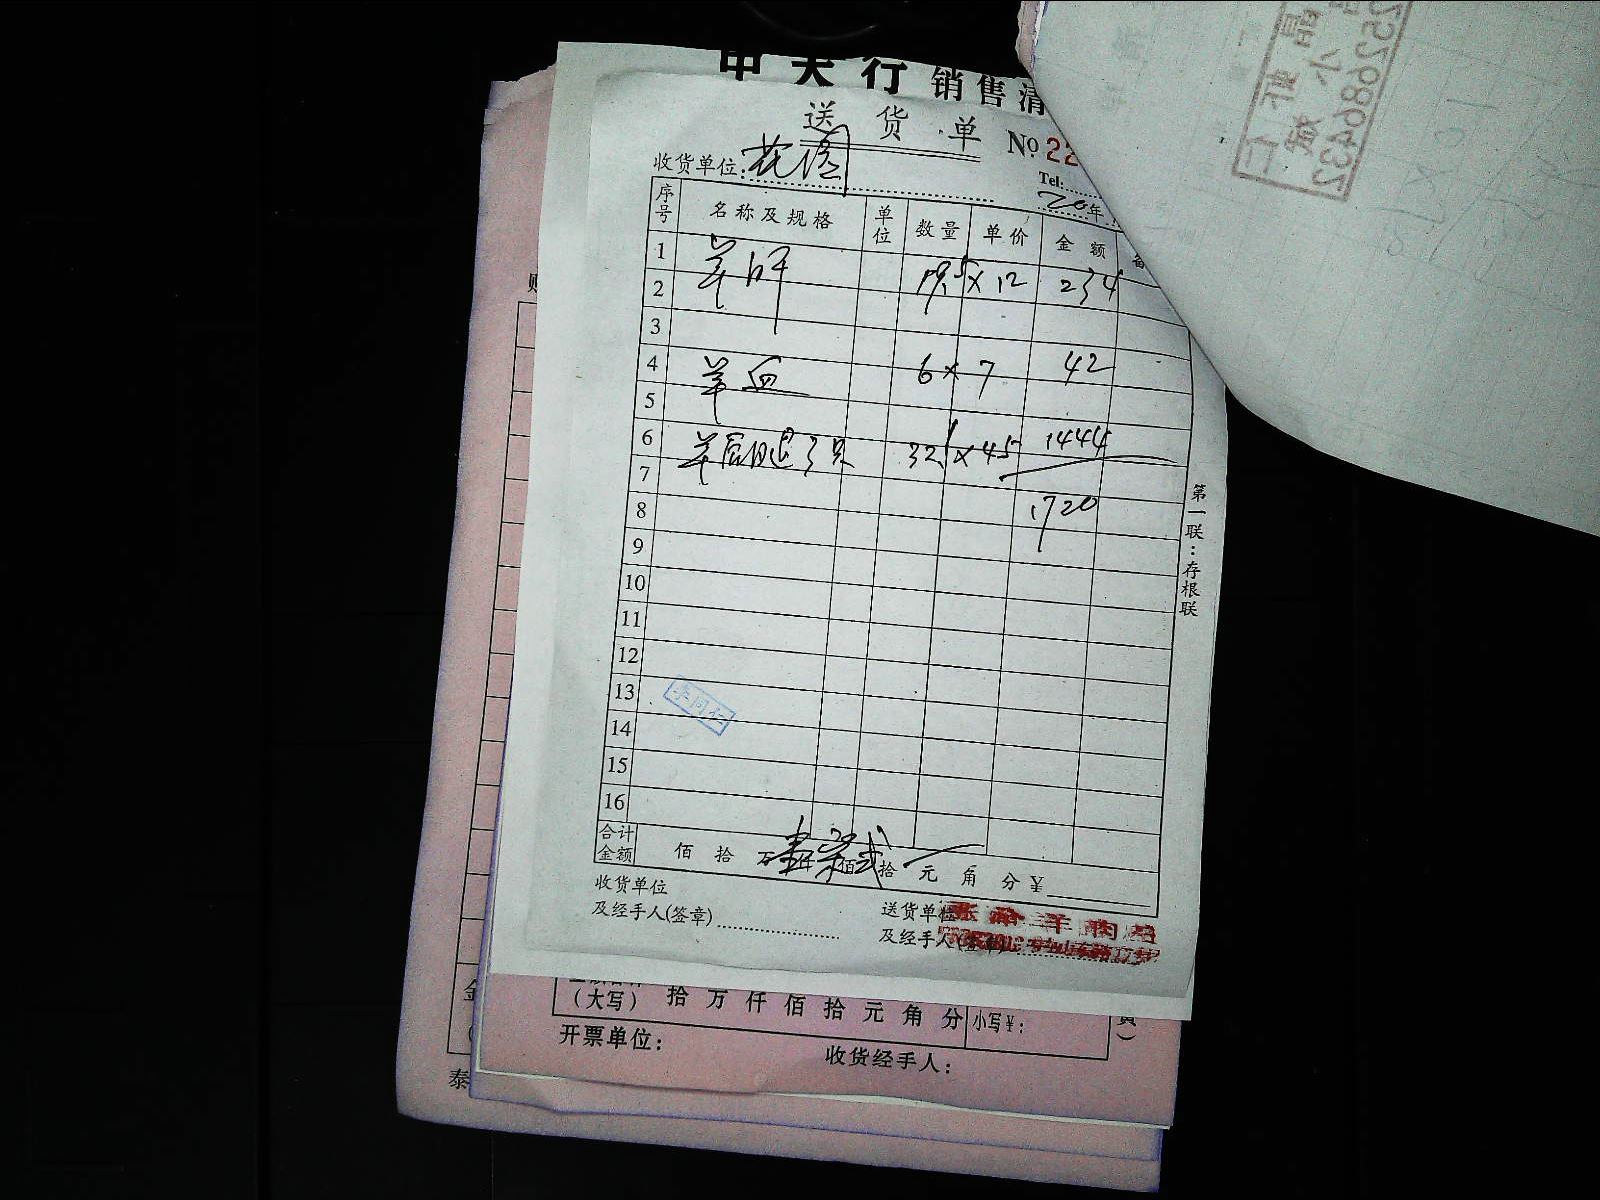 中天行 销售清
送货单 № 22
收货单位: 花园
Tel:
20年
序号 名称及规格 单位 数量 单价 金额 备
1 羊肝 19.5 × 12 234
2
3
4 羊血 6 × 7 42
5
6 羊后腿3只 32.1 × 45 1444
7
8 1720
9
10
11
12
13
14
15
16
李同仁
合计金额 佰 拾 万 壹仟 柒佰 贰拾 元 角 分 ¥
收货单位
及经手人(签章)
送货单位
及经手人(签章)
羊肉店
第一联:存根联
(大写) 拾 万 仟 佰 拾 元 角 分 小写¥:
开票单位:
收货经手人:
泰
15526886432